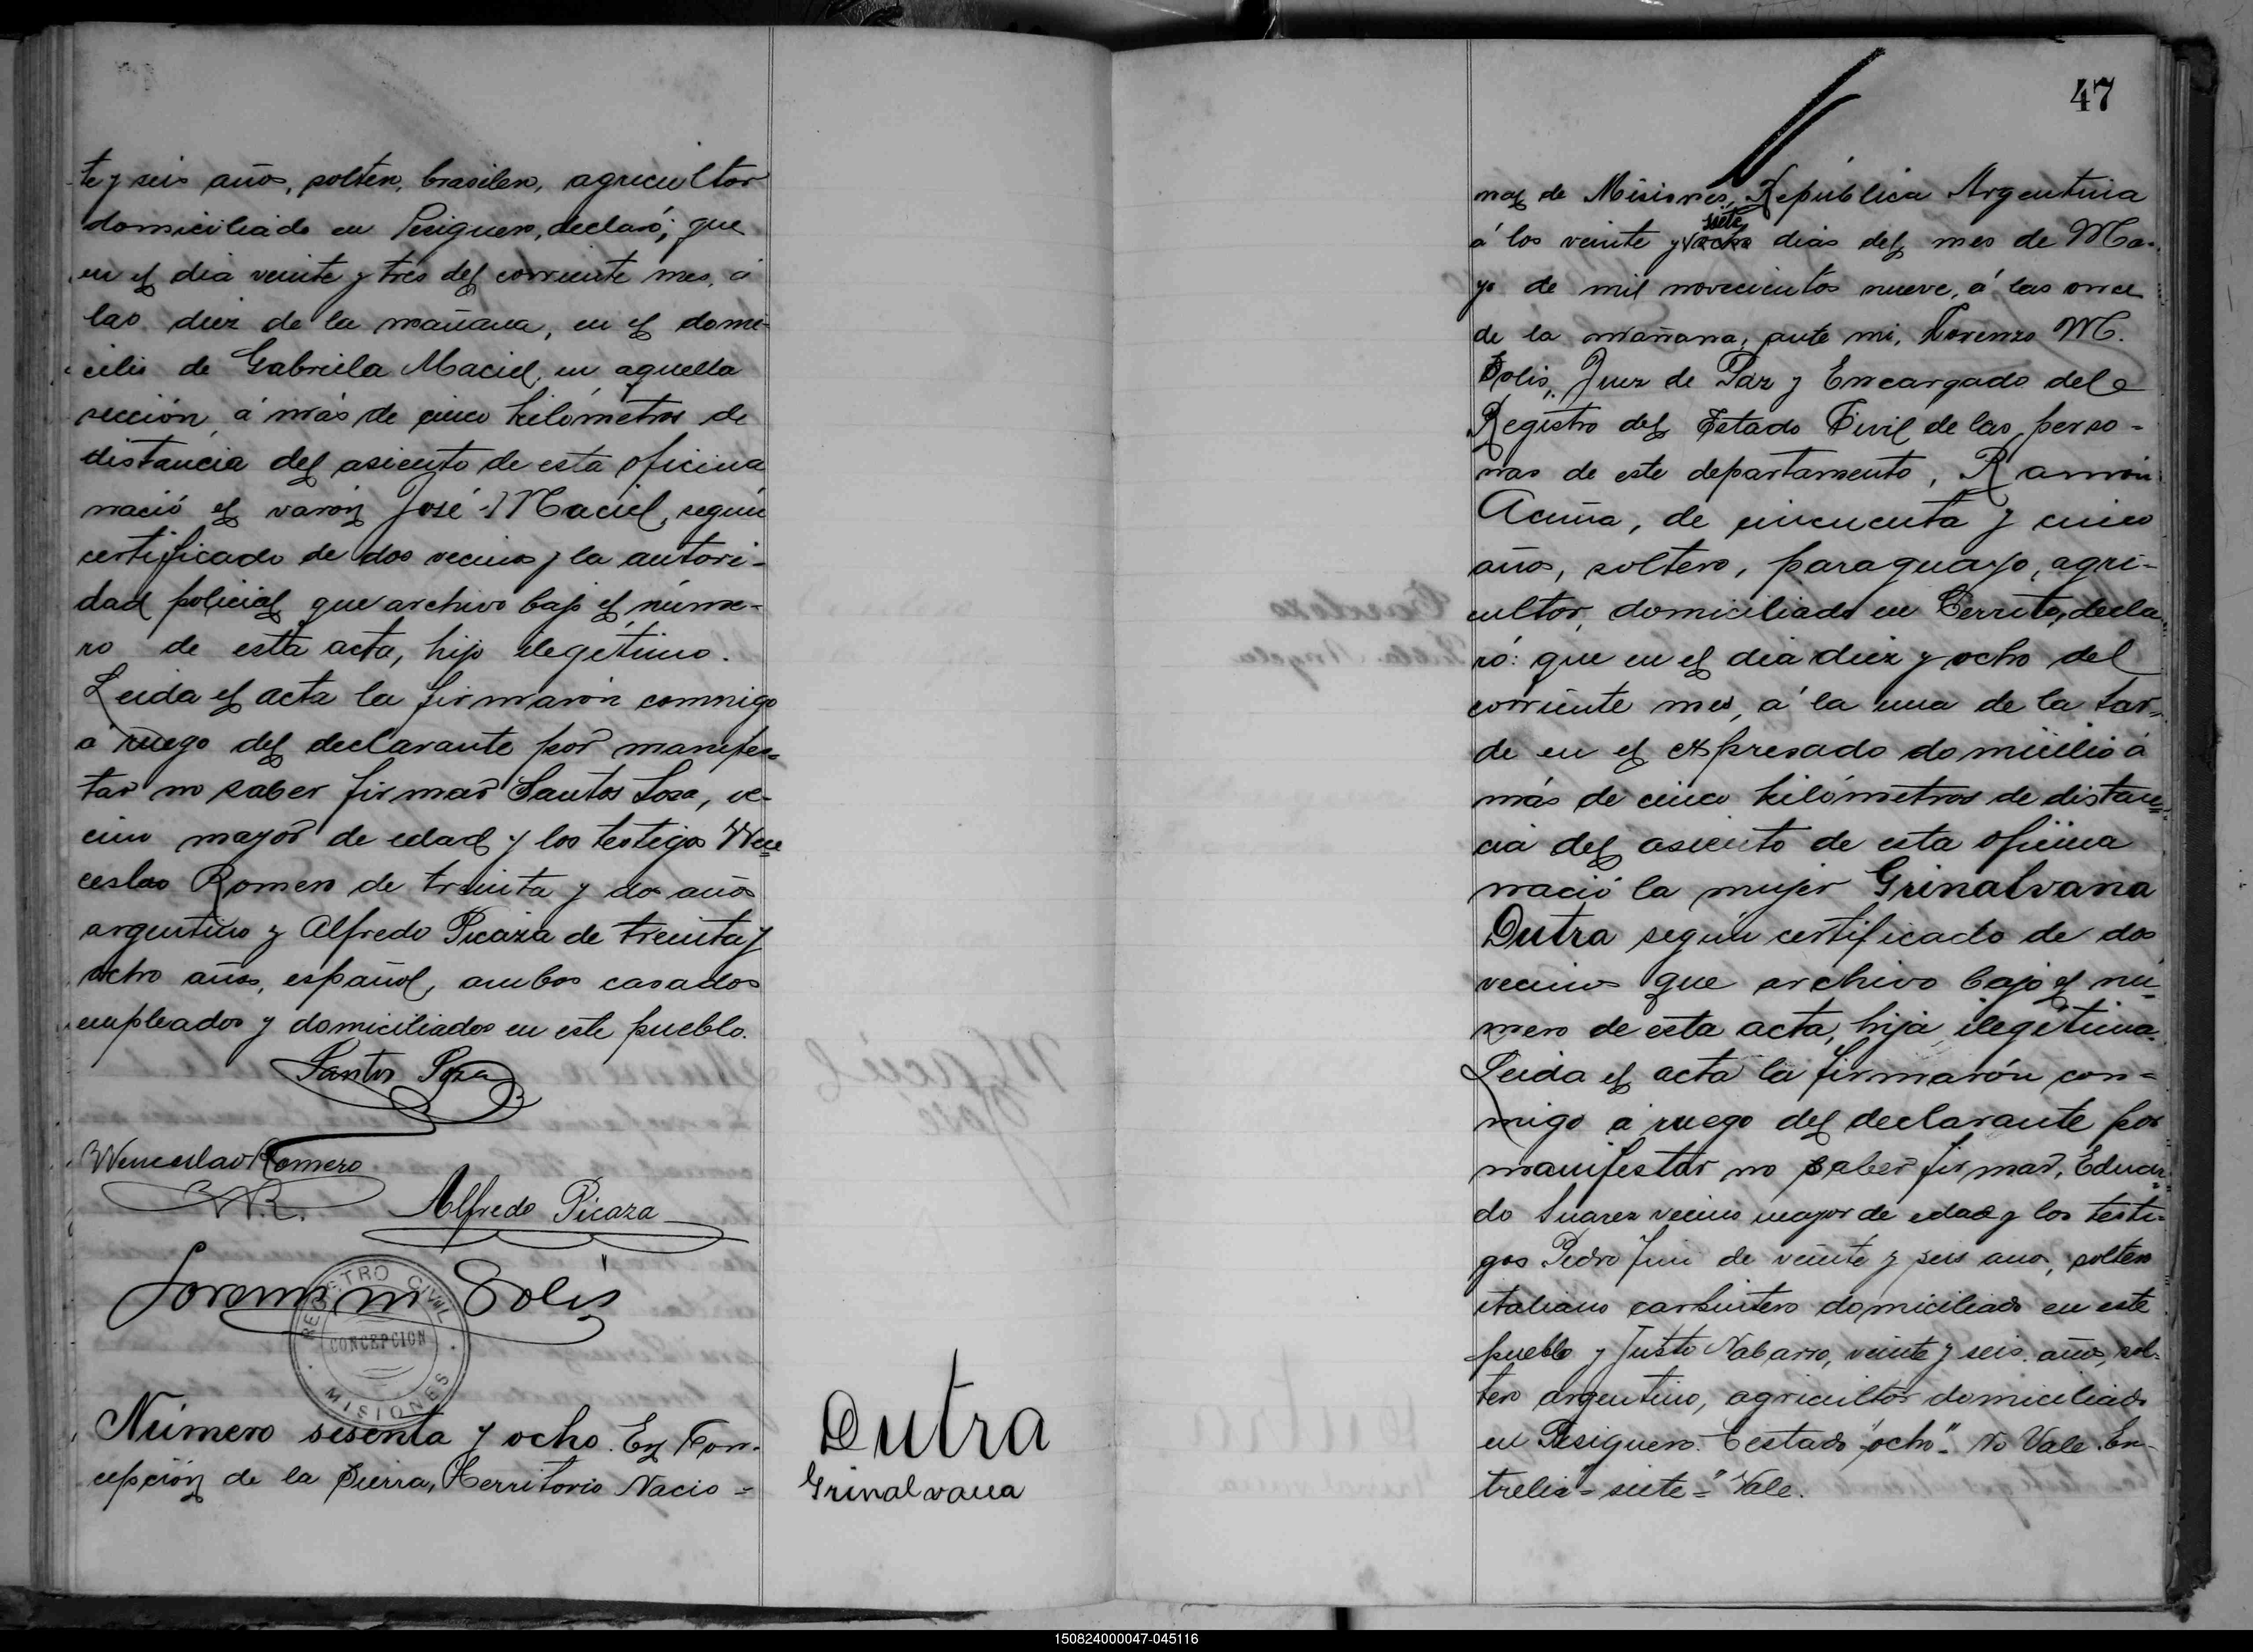 te y seis años, soltero, brasilero, agricultor
domiciliado en Persiguero, declaró; que
en el dia veinte y tres del corriente mes, á
las diez de la mañana, en el domi-
cilio de Gabriela Maciel, en aquella
sección, á más de cinco kilómetros de
distancia del asiento de esta oficina
nació el varón José Maciel, según
certificado de dos vecinos y la autori-
dad policial que archivo bajo el núme-
ro de esta acta, hijo ilegitimo.
Leida el acta la firmaron conmigo
á ruego del declarante por manifes-
tar no saber firmar Santos Sosa, ve-
cino mayor de edad y los testigos Wen
ceslao Romero de treinta y dos años
argentino y Alfredo Picaza de treinta y
ocho años, español, ambos casados
empleados y domiciliados en este pueblo.
Santos Sosa
Wenceslao Romero
W.R.
Alfredo Picaza
Lorenzo M Solis
REGISTRO CIVIL
CONCEPCION
MISIONES
Número sesenta y ocho. En Con-
cepción de la Sierra, Territorio Nacio-
Dutra
Grinalvana
47
nal de Misiones, República Argentina
siete
á los veinte y ocho dias del mes de Ma-
yo de mil novecientos nueve, á las once
de la mañana, ante mi, Lorenzo M.
Solis, Juez de Paz y Encargado del
Registro del Estado Civil de las perso-
nas de este departamento, Ramón
Acuña, de cincuenta y cinco
años, soltero, paraguayo, agri-
cultor, domiciliado en Cerrito, decla
ró: que en el dia diez y ocho del
corriente mes, á la una de la tar-
de en el expresado domicilio á
más de cinco kilómetros de distan-
cia del asiento de esta oficina
nació la mujer Grinalvana
Dutra según certificado de dos
vecinos que archivo bajo el nú-
mero de esta acta, hija ilegitima.
Leida el acta la firmarón con-
migo á ruego del declarante por
manifestar no saber firmar, Eduar-
do Suarez vecino mayor de edad y los testi-
gos Pedro de veinte y seis anos, soltero
italiano carpintero domiciliado en este
pueblo y Justo Nabarro, veinte y seis años, sol-
tero argentino, agricultor domiciliado
en Persiguero. Testado "ocho" No Vale. En-
trelia "siete" Vale.
150824000047-045116